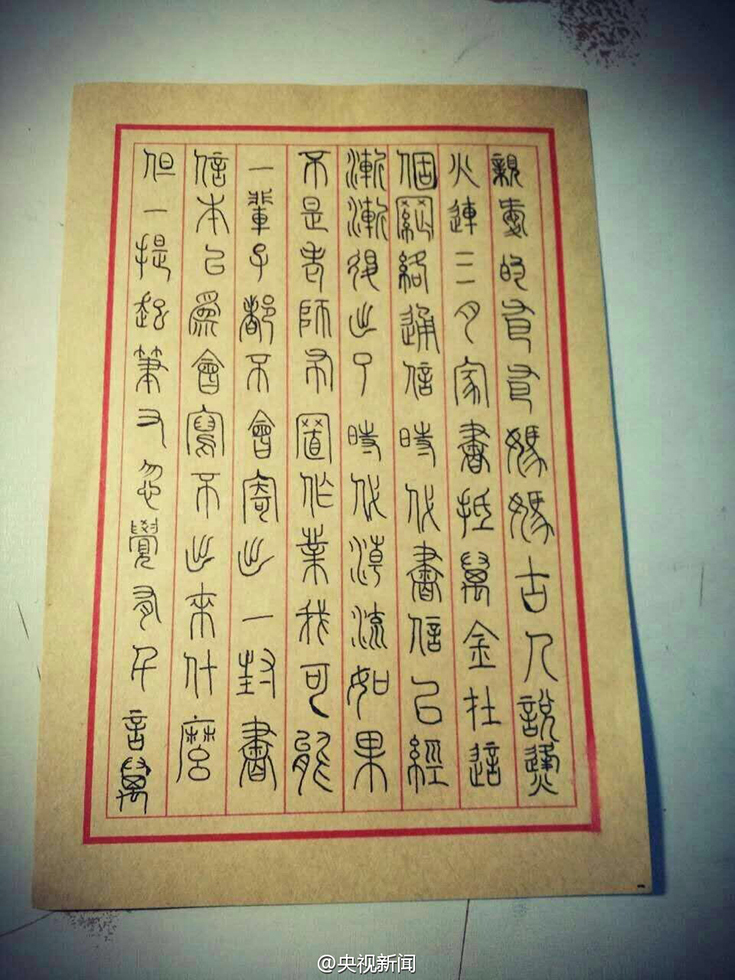 親愛的爸爸媽媽古人説烽
火連三月家書抵萬金在這
個網絡通信時代書信已經
漸漸退出了時代潮流如果
不是老師布置作業我可能
一輩子都不會寄出一封書
信本以為會寫不出來什麼
但一提起筆又忽覺有千言萬
@央视新闻